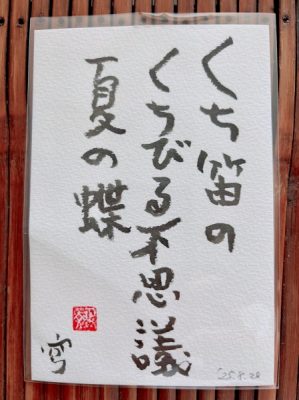 くち笛の
くちびる不思議
夏の蝶
'25.8.28